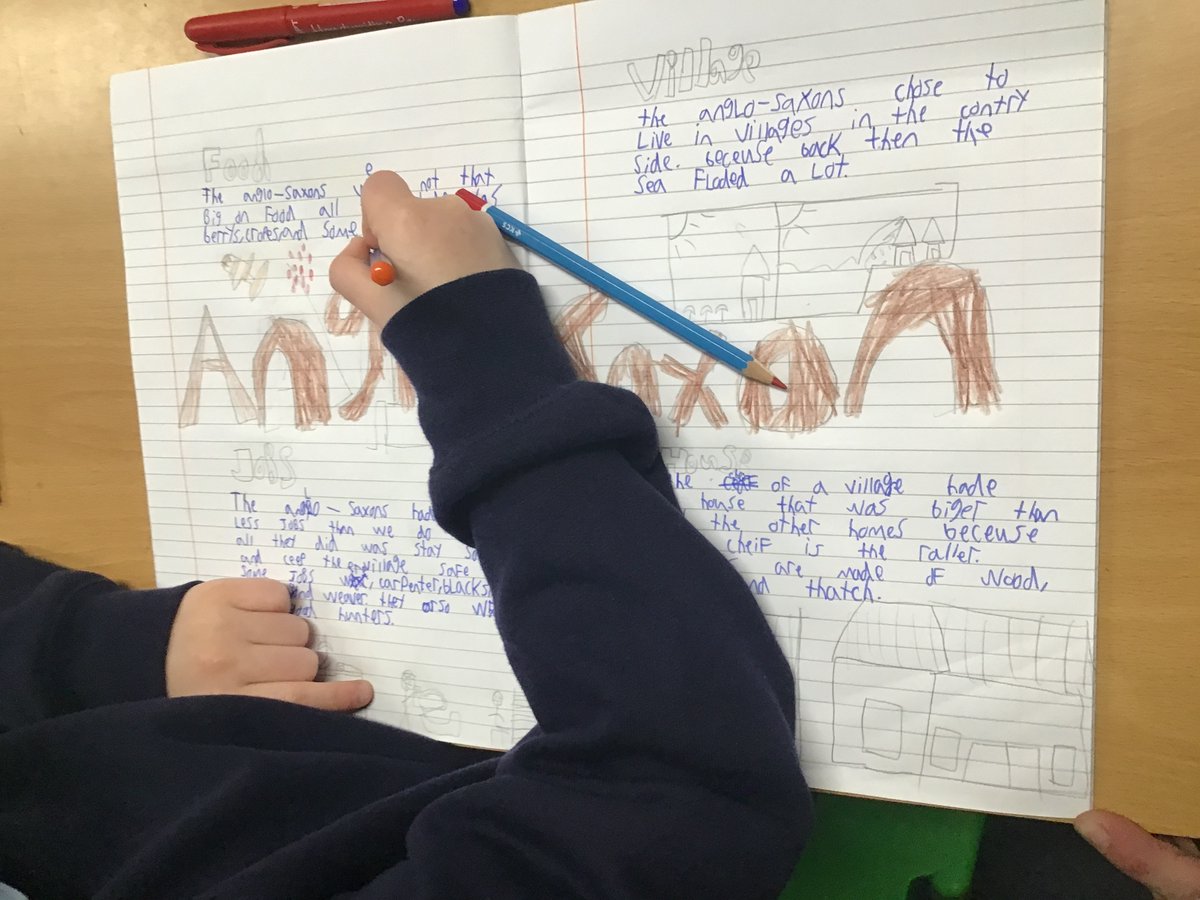 Food
The anglo-saxons not that
Big on Food all
berrys, and some
Village
the anglo-saxons chose to
Live in villages in the contry
side. beceuse back then the
sea Floded a Lot.
Jobs
The anglo-saxons had
Less Jobs than we do
all they did was stay
and ceep the village safe
some Jobs carpenter,
and weaver. they orso
hunters.
House
OF a village hade
house that was biger than
the other homes beceuse
cheif is the raller.
are made of Wood,
and thatch.